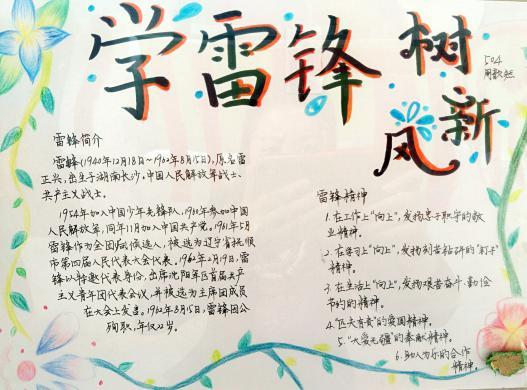 学雷锋 树
新
风
504
周歆然
雷锋简介
雷锋(1940年12月18日~1962年8月15日),原名雷
正兴,出生于湖南长沙,中国人民解放军战士、
共产主义战士。
1954年加入中国少年先锋队,1960年参加中国
人民解放军,同年11月加入中国共产党。1961年5月
雷锋作为全团候选人,被选为辽宁省抚顺
市第四届人民代表大会代表。1962年2月19日,雷
锋以特邀代表身份,出席沈阳军区首届共产
主义青年团代表会议,并被选为主席团成员
在大会上发言。1962年8月15日,雷锋因公
殉职,年仅22岁。
雷锋精神
1.在工作上“向上”,发扬忠于职守的敬
业精神。
2.在学习上“向上”,发扬刻苦钻研的“钉子”
精神。
3.在生活上“向上”,发扬艰苦奋斗、勤俭
节约的精神。
4.“匹夫有责”的爱国精神。
5.“大爱无疆”的奉献精神。
6.助人为乐的合作
精神。